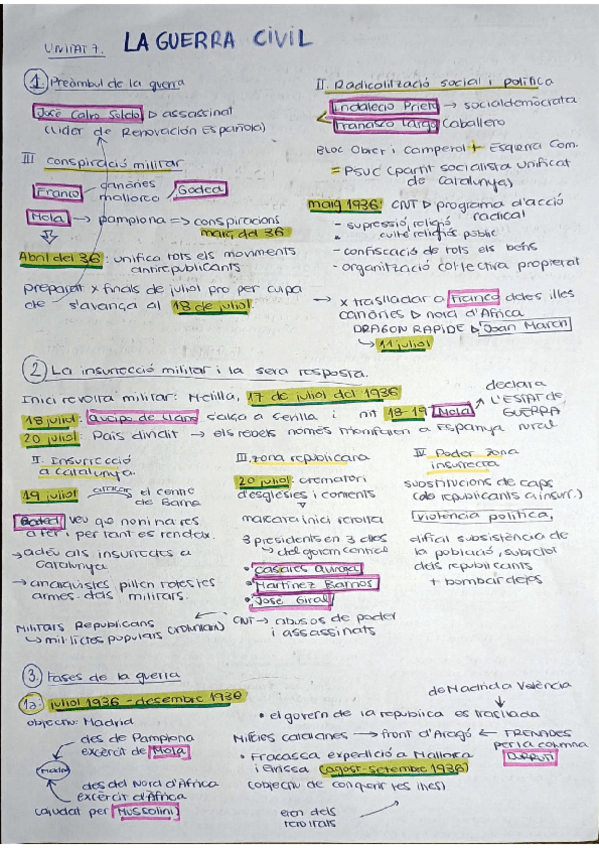 UNITAT 7. LA GUERRA CIVIL
1 Preàmbul de la guerra
José Calvo Sotelo → assassinat
(Líder de Renovación Española)
III conspiració militar
Franco canàries
mallorca Goded
Mola → pamplona => conspiracions
maig del 36
Abril del 36: unifica tots els moviments
antirepublicans
preparat x finals de juliol pro per culpa
de s'avança al 18 de juliol
II. Radicalització social i política
Indalecio Prieto → socialdemòcrata
Francisco Largo Caballero
Bloc Obrer i Camperol + Esquerra Com.
= PSUC (partit socialista unificat
de Catalunya)
maig 1936: CNT → programa d'acció
radical
- supressió religió
culte religiós públic
- confiscació de tots els béns
- organització col·lectiva propietat
→ x traslladar a Franco des de les illes
canàries → nord d'Àfrica
DRAGON RAPIDE → Joan March
→ 11 juliol
2 La insurrecció militar i la seva resposta.
Inici revolta militar: Melilla, 17 de juliol del 1936
18 juliol: Queipo de Llano s'alça a Sevilla i nit 18-19 Mola
declara
L'ESTAT de
GUERRA
20 juliol: País dividit → els rebels només triomfaren a Espanya rural
II. Insurrecció
a Catalunya.
19 juliol el centre
de Barna
Goded veu que no hi ha res
a fer i per tant es rendeix.
→ adéu als insurrectes a
Catalunya
→ anarquistes pillen totes les
armes dels militars.
Militars Republicans
→ milícies populars (voluntaris)
III. zona republicana
20 juliol: crematori
d'esglésies i convents
marcarà inici revolta
3 presidents en 3 dies
→ del govern central
• Casares Quiroga
• Martínez Barrios
• José Giral
CNT → abusos de poder
i assassinats
IV Poder zona
insurrecta
substitucions de caps
(dels republicans a insurr.)
Violència política,
difícil subsistència de
la població, sobretot
dels republicans
+ bombardejos
3. Fases de la guerra
1a. juliol 1936 - desembre 1936
objectiu: Madrid
des de Pamplona
exèrcit de Mola
des del Nord d'Àfrica
exèrcit d'Àfrica
(ajudat per Mussolini)
de Madrid a València
• el govern de la republica es trasllada
Milícies catalanes → front d'Aragó ← FRENADES
per la columna
Durruti
• Fracassa expedició a Mallorca
i Eivissa (agost-setembre 1936)
(objectiu de conquerir les illes)
eren dels
revoltats